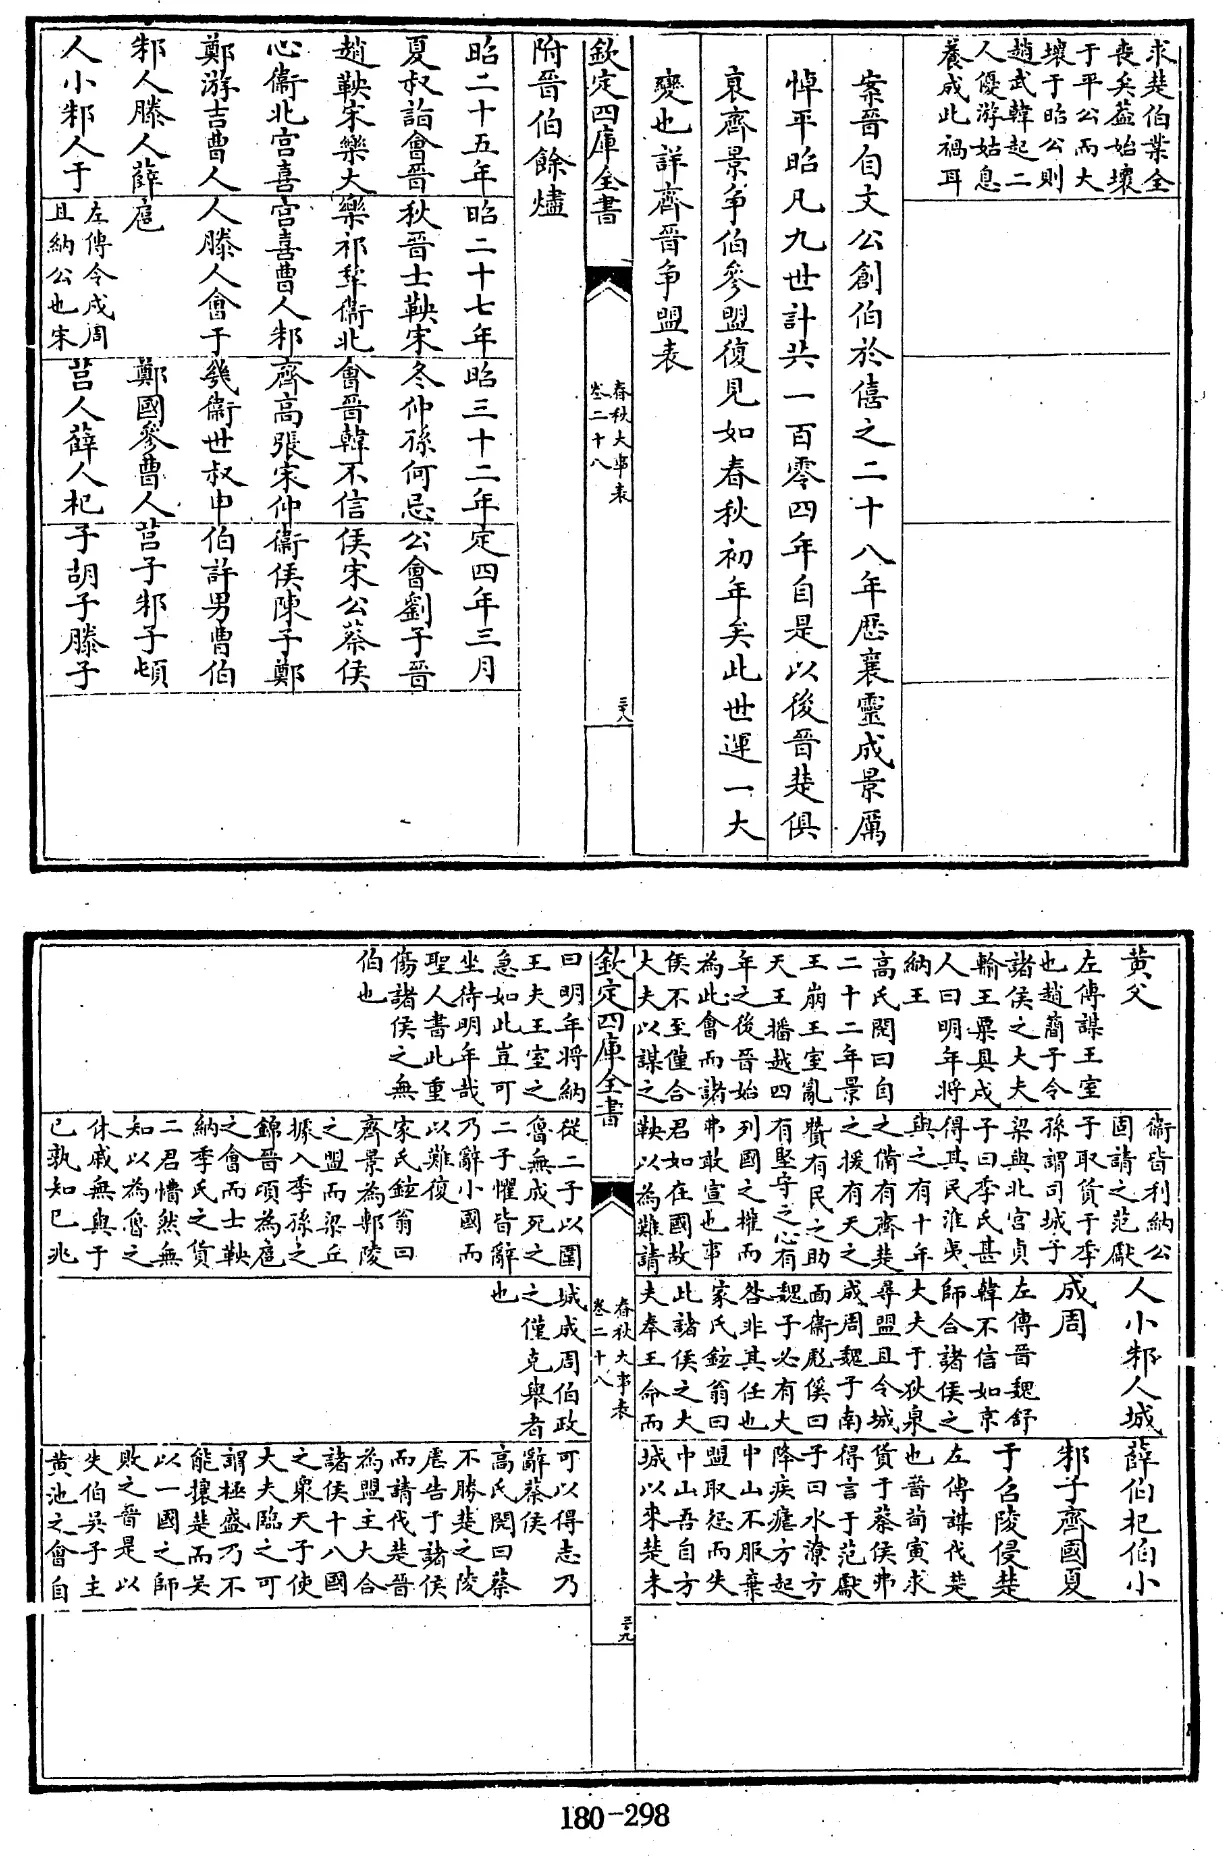 求楚伯業全
喪矣葢始壞
于平公而大
壞于昭公則
趙武韓起二
人優游姑息
養成此禍耳
案晉自文公創伯於僖之二十八年歴襄靈成景厲
悼平昭凡九世計共一百零四年自是以後晉楚俱
衰齊景争伯參盟復見如春秋初年矣此世運一大
變也詳齊晉争盟表
欽定四庫全書
春秋大事表
卷二十八
三十八
附晉伯餘燼
昭二十五年
夏叔詣會晉
趙鞅宋樂大
心衞北宮喜
鄭游吉曹人
邾人滕人薛
人小邾人于
昭二十七年
秋晉士鞅宋
樂祁犂衞北
宮喜曹人邾
人滕人會于
扈
左傳令戍周
且納公也宋
昭三十二年
冬仲孫何忌
會晉韓不信
齊高張宋仲
幾衞世叔申
鄭國參曹人
莒人薛人杞
定四年三月
公會劉子晉
侯宋公蔡侯
衞侯陳子鄭
伯許男曹伯
莒子邾子頓
子胡子滕子
黄父
左傳謀王室
也趙簡子令
諸侯之大夫
輸王粟具戍
人曰明年將
納王
高氏閌曰自
二十二年景
王崩王室亂
天王播越四
年之後晉始
為此會而諸
侯不至僅合
大夫以謀之
衞皆利納公
固請之范獻
子取貨于季
孫謂司城子
梁與北宮貞
子曰季氏甚
得其民淮夷
與之有十年
之備有齊楚
之援有天之
贊有民之助
有堅守之心有
列國之權而
弗敢宣也事
君如在國故
鞅以為難請
人小邾人城
成周
左傳晉魏舒
韓不信如京
師合諸侯之
大夫于狄泉
尋盟且令城
成周魏子南
面衞彪傒曰
魏子必有大
咎非其任也
家氏鉉翁曰
此諸侯之大
夫奉王命而
薛伯杞伯小
邾子齊國夏
于召陵侵楚
左傳謀伐楚
也晉荀寅求
貨于蔡侯弗
得言于范獻
子曰水潦方
降疾瘧方起
中山不服棄
盟取怨而失
中山吾自方
城以來楚未
欽定四庫全書
春秋大事表
卷二十八
三十九
曰明年將納
王夫王室之
急如此豈可
坐待明年哉
聖人書此重
傷諸侯之無
伯也
從二子以圍
魯無成死之
二子懼皆辭
乃辭小國而
以難復
家氏鉉翁曰
齊景為鄟陵
之盟而梁丘
據入季孫之
錦晉頃為扈
之會而士鞅
納季氏之貨
二君懵然無
知以為魯之
休戚無與于
己孰知已兆
城成周伯政
之僅克舉者
也
可以得志乃
辭蔡侯
高氏閌曰蔡
不勝楚之陵
虐告于諸侯
而請伐楚晉
為盟主大合
諸侯十八國
之衆天子使
大夫臨之可
謂極盛乃不
能攘楚而吳
以一國之師
敗之晉是以
失伯吳子主
黄池之會自
180-298